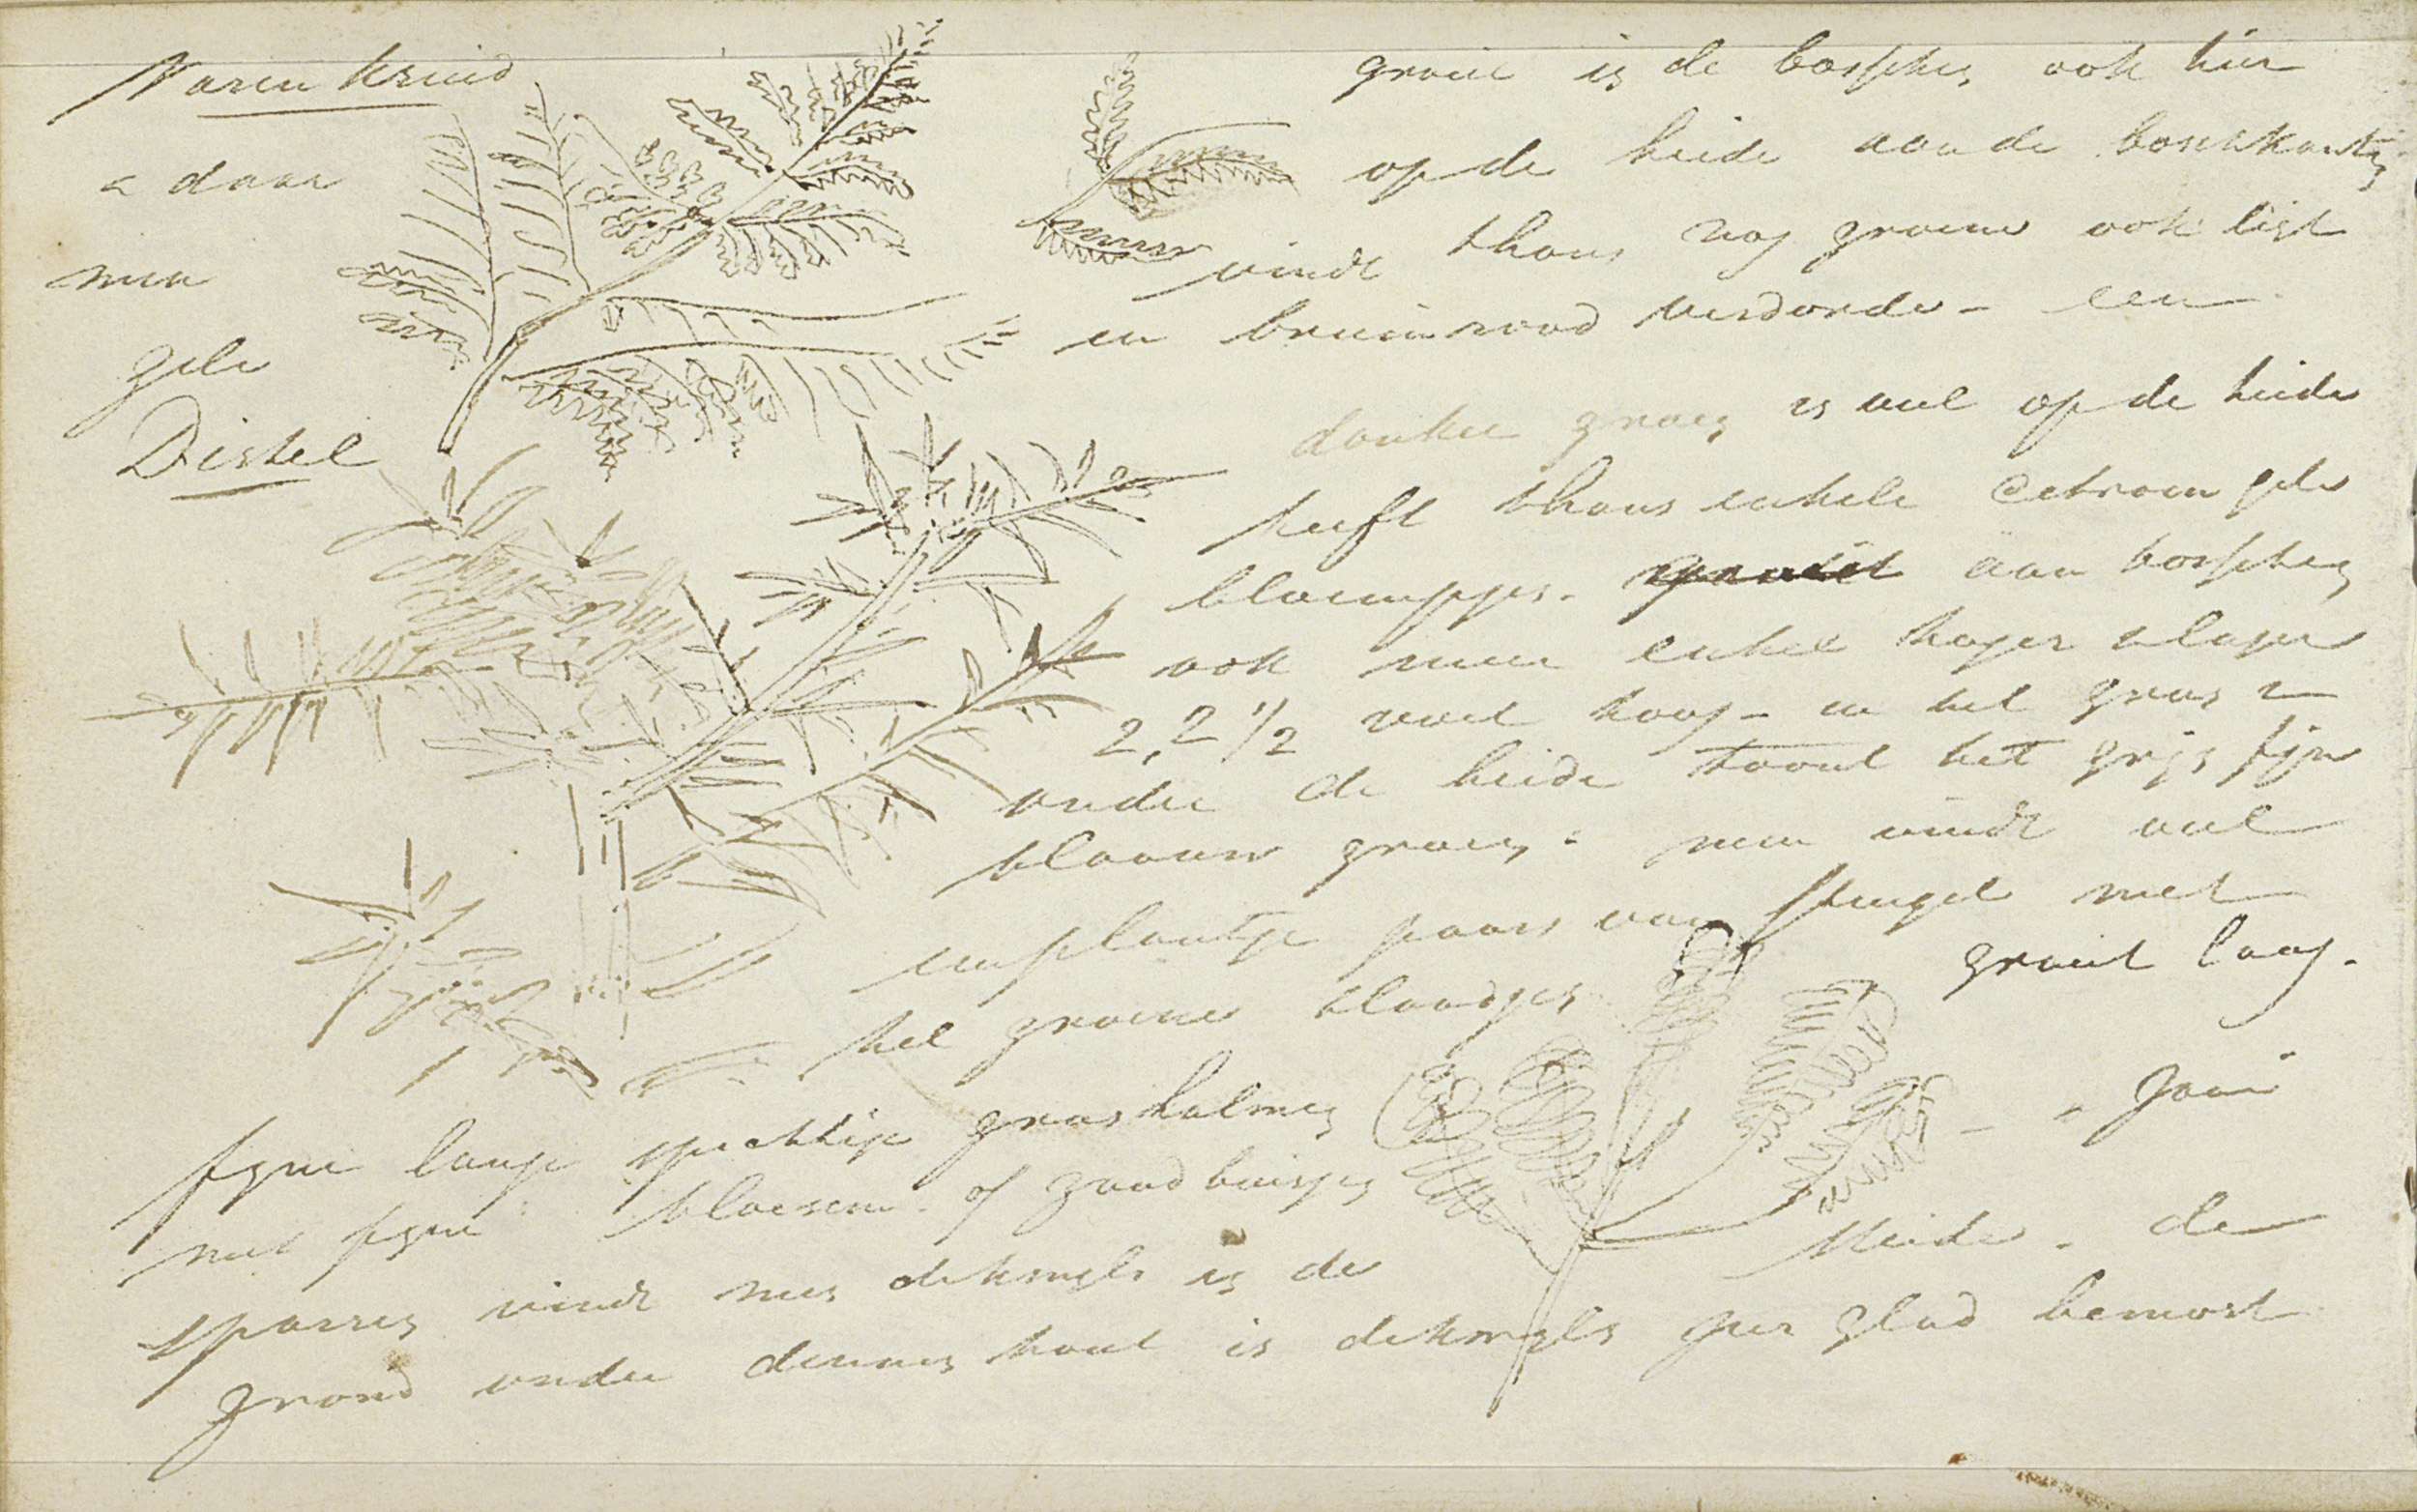 Varen kruid groeit in de bosschen ook hier
& daar op de heide aan de boschkanten
men vindt thans nog groene ook ligt
gele en bruinrood verdorde - een
Distel donker groen is veel op de heide
heeft thans enkele Citroen gele
bloempjes. groeit aan bosschen
ook meer enkel hoger & lager
2, 2 1/2 voet hoog - in het gras &
onder de heide toont het grijs fijn
blaauw groen. men vindt veel
een plantje paars van stengel met
hel groene blaadjes groeit laag.
fyne lange spichtige grashalmen - &
met fyne bloesem of zaad huisjes
sparren vindt men dikwyls in de Heide. de
grond onder dennen hout is dikwyls zeer glad bemost